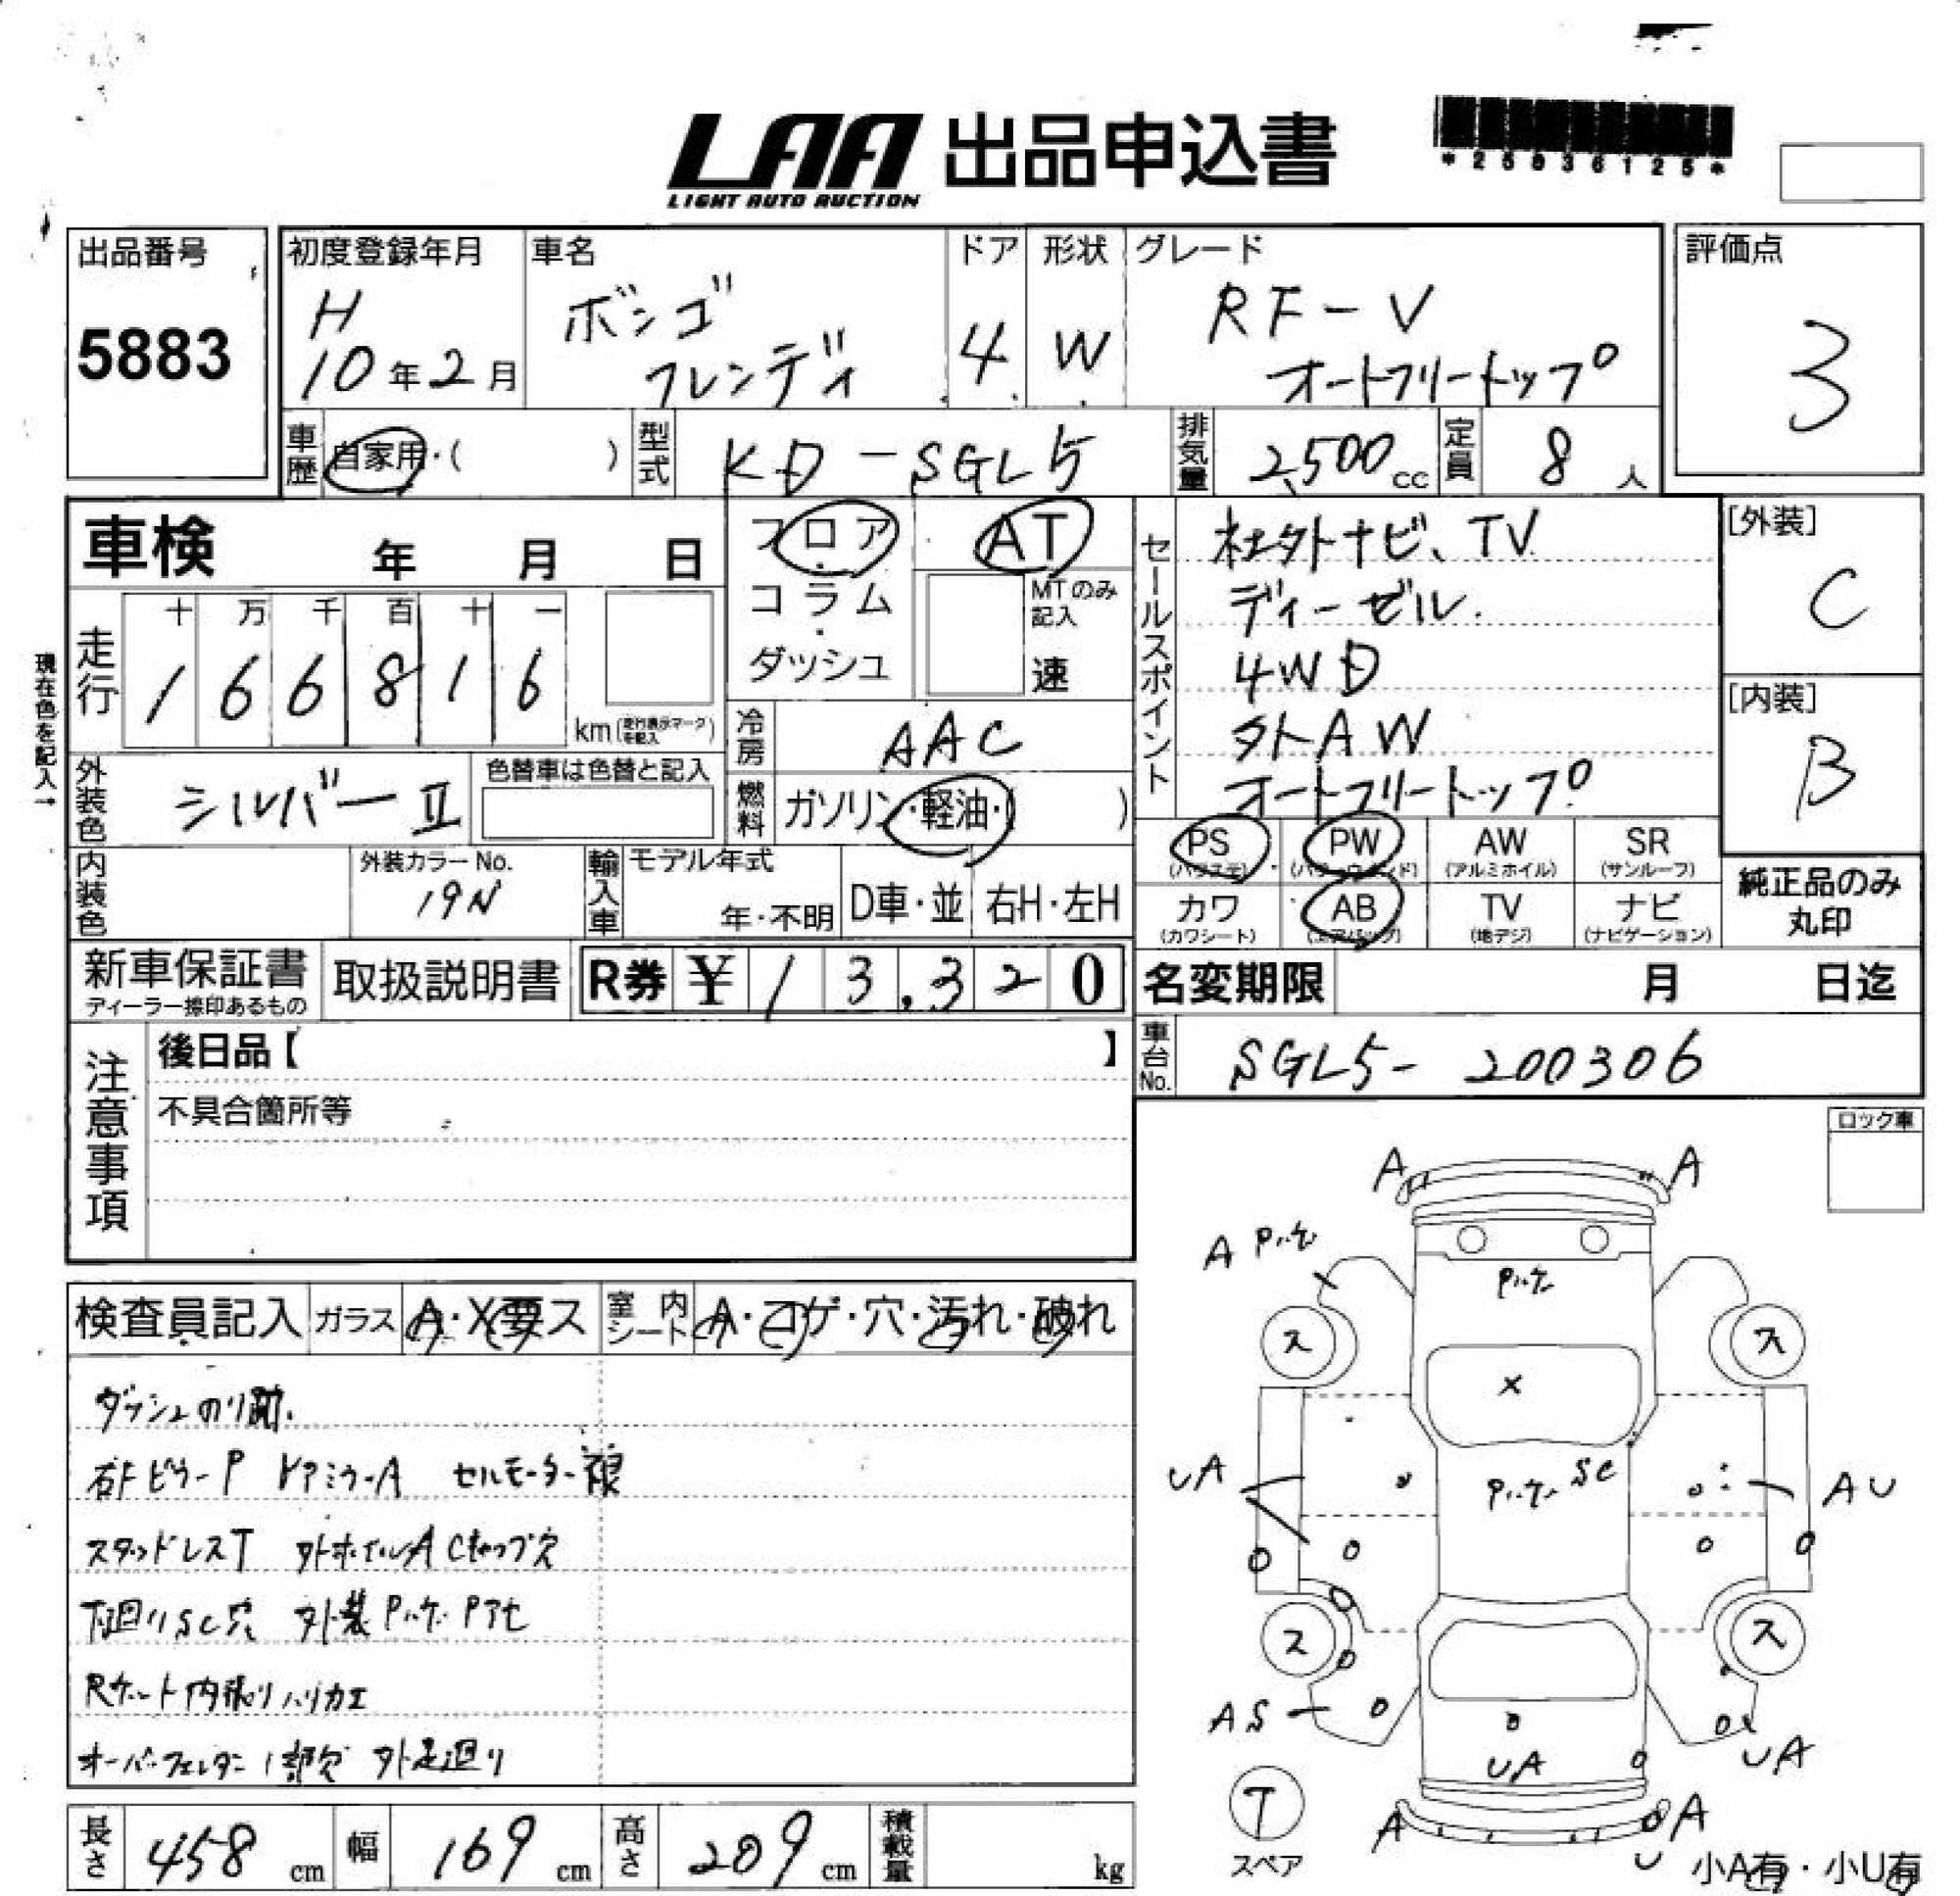 LAA 出品申込書
LIGHT AUTO AUCTION
*25036125*
出品番号
5883
初度登録年月
H
10年2月
車名
ボンゴ
フレンディ
ドア
4
形状
W
グレード
RF-V
オートフリートップ
評価点
3
車歴
自家用・(　)
型式
KD-SGL5
排気量
2,500cc
定員
8人
車検　年　月　日
フロア
・
コラム
・
ダッシュ
AT
MTのみ
記入
速
セールスポイント
社外ナビ、TV
ディーゼル
4WD
外AW
オートフリートップ
[外装]
C
[内装]
B
現在色を記入→
走行
十 万 千 百 十 一
1 6 6 8 1 6
km(走行表示マークを記入)
冷房
AAC
外装色
シルバーⅡ
色替車は色替と記入
燃料
ガソリン・軽油・(　)
内装色
外装カラーNo.
19N
輸入車
モデル年式
年・不明
D車・並
右H・左H
PS
(パワステ)
PW
(パワーウインド)
AW
(アルミホイル)
SR
(サンルーフ)
カワ
(カワシート)
AB
(エアバッグ)
TV
(地デジ)
ナビ
(ナビゲーション)
純正品のみ
丸印
新車保証書
ディーラー捺印あるもの
取扱説明書
R券 ¥13,320
名変期限　月　日迄
車台No.
SGL5-200306
注意事項
後日品【　】
不具合箇所等
ロック車
検査員記入
ガラス
A・X要ス
室内
シート
A・コゲ・穴・汚れ・破れ
ダッシュのり跡.
右FピラーP ドアミラーA セルモーター
スタッドレスT 外ホイルA Cキャップ欠
下廻りSC穴 外装Pハゲ Pアセ
Rゲート内張りハリカエ
オーバーフェンダー1部欠 外足廻り
A A
A Pハゲ
Pハゲ
ス ス
X
UA
Pハゲ SC
AU
ス ス
AS
UA
UA
T
スペア
A A
U
小A有・小U有
長さ
458cm
幅
169cm
高さ
209cm
積載量
kg